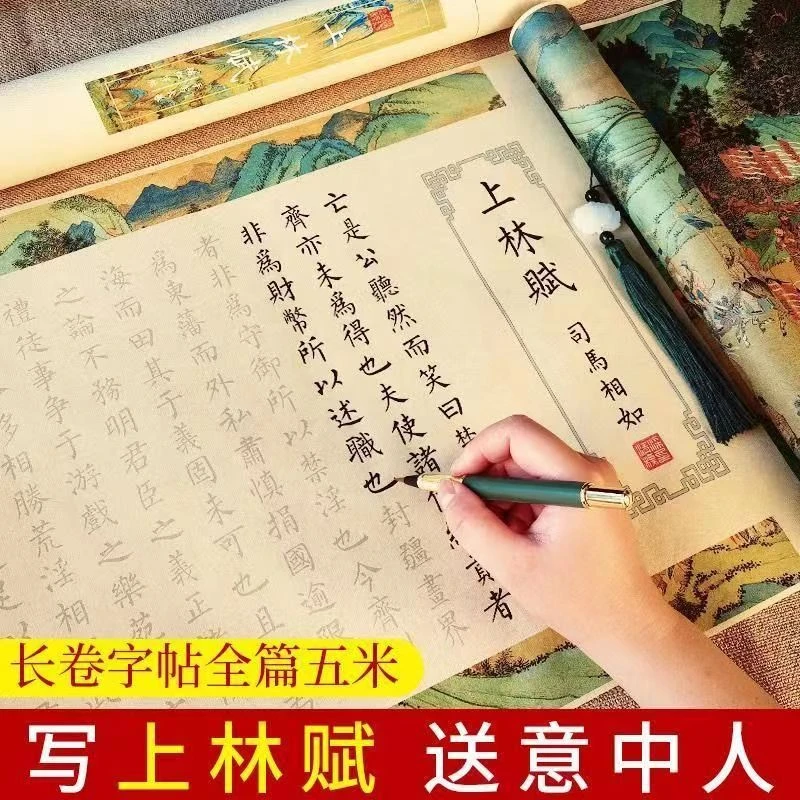 上林賦
上林賦
司馬相如
亡是公聽然而笑曰楚
齊亦未為得也夫使諸貢者
非為財幣所以述職也封疆畫界
者非為守御所以禁淫也今齊
為東藩而外私肅慎捐國逾限
海而田其于義固未可也且
之論不務明君臣之義正諸
禮徒事爭于游戲之樂苑
多相勝荒淫相
长卷字帖全篇五米
写上林赋 送意中人